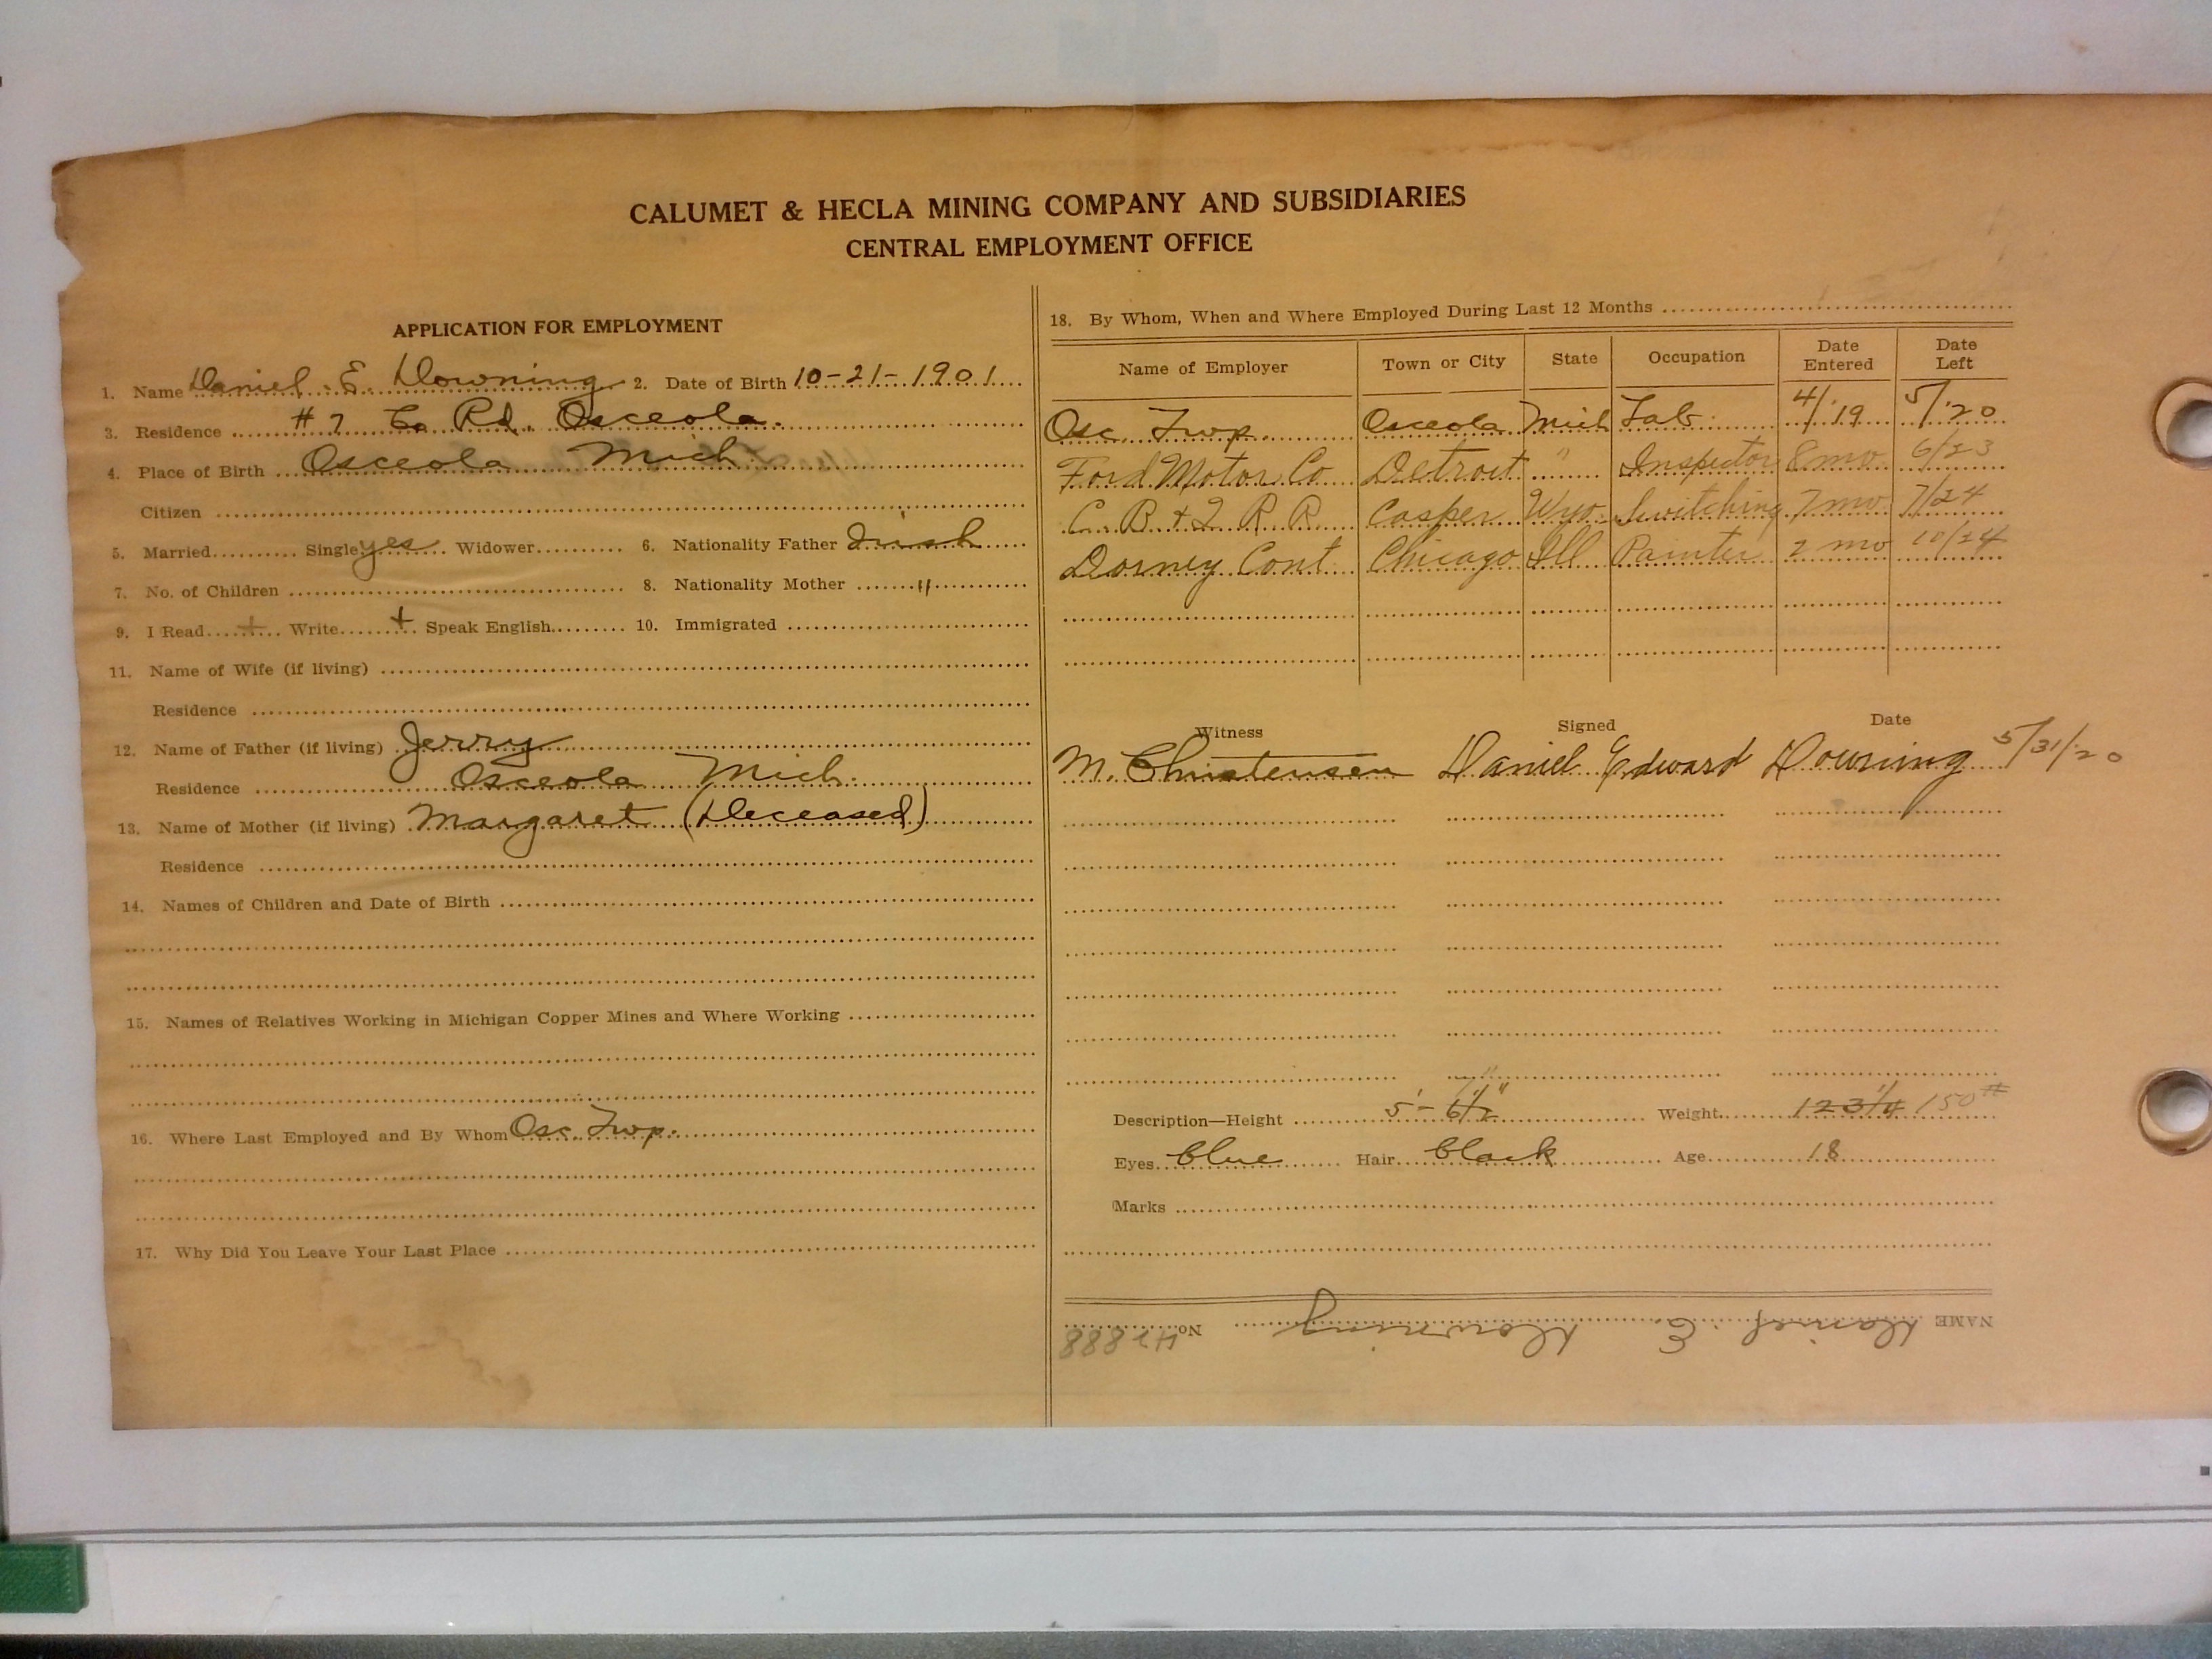 CALUMET & HECLA MINING COMPANY AND SUBSIDIARIES
CENTRAL EMPLOYMENT OFFICE
APPLICATION FOR EMPLOYMENT
1. Name Daniel E. Downing 2. Date of Birth 10-21-1901
3. Residence #7 Co Rd. Osceola.
4. Place of Birth Osceola Mich.
Citizen
5. Married Single yes Widower 6. Nationality Father Irish
7. No. of Children 8. Nationality Mother "
9. I Read + Write + Speak English 10. Immigrated
11. Name of Wife (if living)
Residence
12. Name of Father (if living) Jerry
Residence Osceola Mich.
13. Name of Mother (if living) Margaret (Deceased)
Residence
14. Names of Children and Date of Birth
15. Names of Relatives Working in Michigan Copper Mines and Where Working
16. Where Last Employed and By Whom Osc. Twp.
17. Why Did You Leave Your Last Place
18. By Whom, When and Where Employed During Last 12 Months
Name of Employer Town or City State Occupation Date Entered Date Left
Osc. Twp. Osceola Mich Lab. 4/'19 5/'20
Ford Motor Co Detroit " Inspector 8 mo. 6/23
C. B. + Q R. R. Casper Wyo. Switching 7 mo 7/24
Dorney Cont. Chicago Ill Painter 2 mo 10/24
Witness Signed Date
M. Christensen Daniel Edward Downing 5/31/20
Description—Height 5'- 6 1/2" Weight 123 1/4 150#
Eyes blue Hair black Age 18
Marks
NAME Daniel E. Downing No.